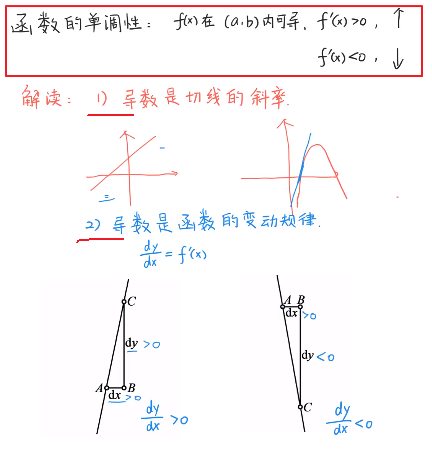 函数的单调性： f(x)在 (a,b)内可导, f'(x)>0, ↑
f'(x)<0, ↓
解读： 1) 导数是切线的斜率.
2) 导数是函数的变动规律.
dy/dx = f'(x)
C
dy >0
A B
dx >0
dy/dx >0
A B
dx >0
dy <0
C
dy/dx <0